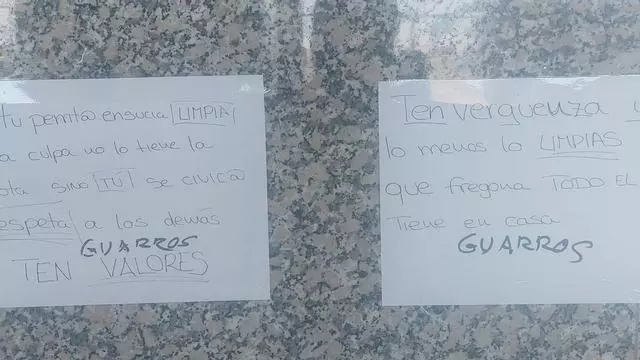 tu perrit@ ensucia LIMPIA
culpa no lo tiene la
sino TÚ se civic@
respeta a los demás
GUARROS
TEN VALORES
Ten verguenza
lo menos lo LIMPIAS
que fregona TODO EL
Tiene en casa
GUARROS